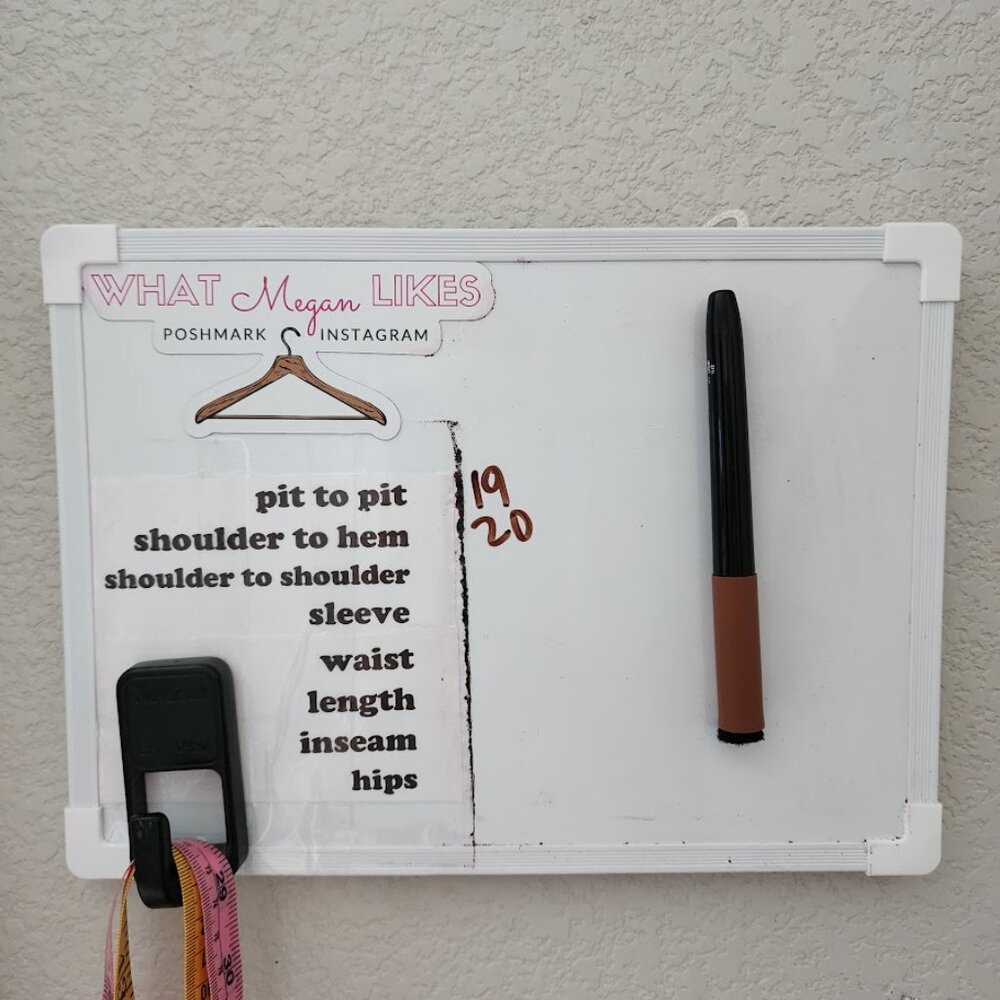 WHAT Megan LIKES
POSHMARK INSTAGRAM
pit to pit 19
shoulder to hem 20
shoulder to shoulder
sleeve
waist
length
inseam
hips
29
30